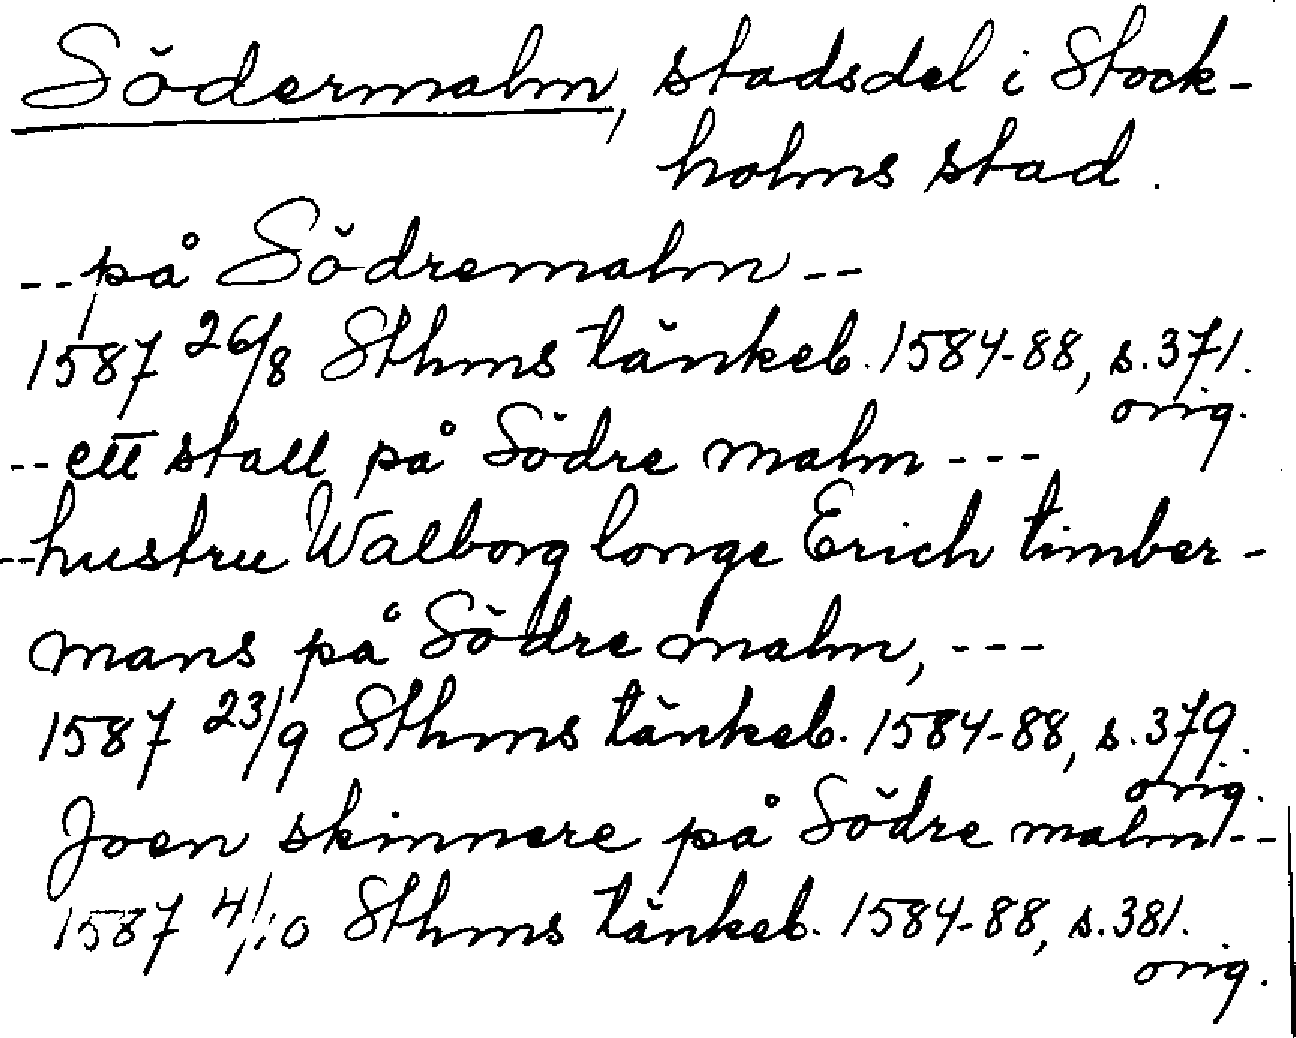 Södermalm, stadsdel i Stock-
holms stad.
-- på Södremalm --
1587 26/8 Sthms tänkeb. 1584-88, s. 371.
orig.
-- ett stall på Södre malm ---
-- hustru Walborg longe Erich timber-
mans på Södre malm, ---
1587 23/9 Sthms tänkeb. 1584-88, s. 379.
orig.
Joen skinnere på Södre malm --
1587 4/10 Sthms tänkeb. 1584-88, s. 381.
orig.